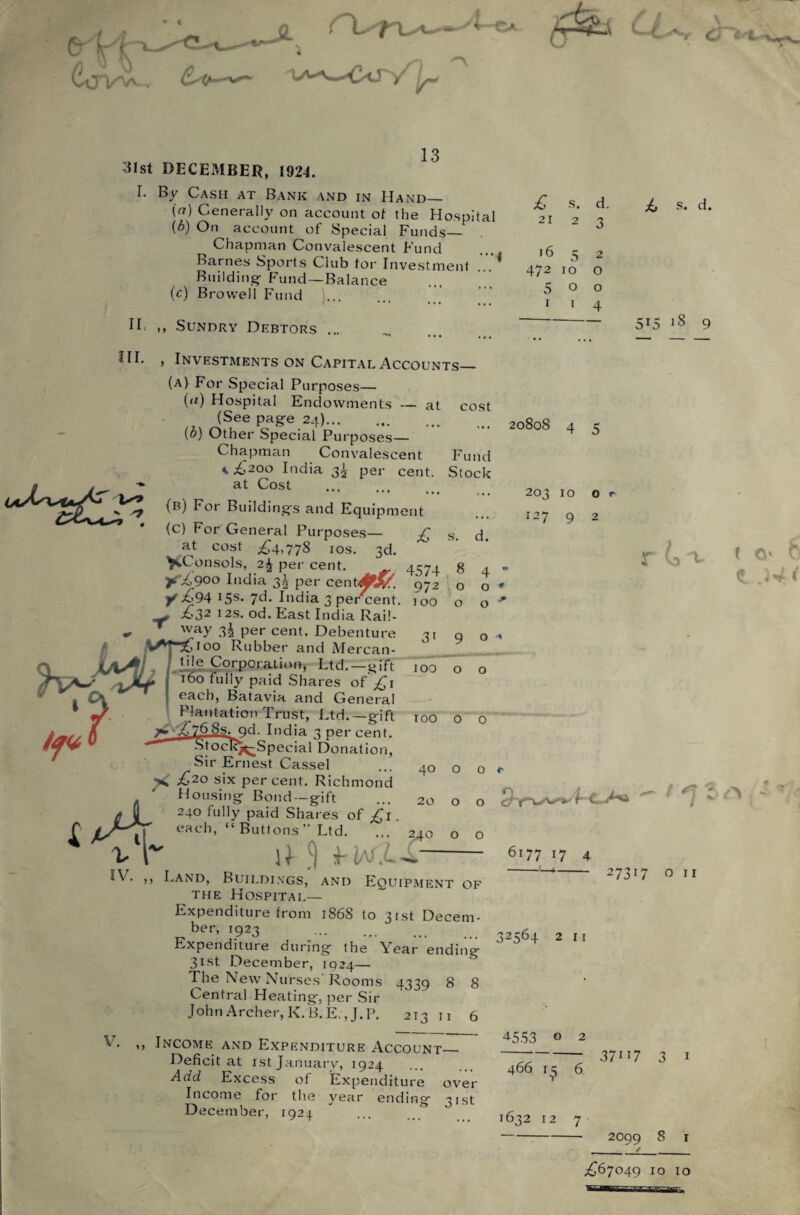 13
31st DECEMBER, 1924.
I. By Cash at Bank and in Hand— £ s. d. £ s. d.
(a) Generally on account of the Hospital 21 2 3
(b) On account of Special Funds—
Chapman Convalescent Fund ... 16 5 2
Barnes Sports Club for Investment ... 472 10 0
Building Fund—Balance ... ... 5 0 0
(c) Browell Fund ... ... ... ... 1 1 4
515 18 9
II. ,, Sundry Debtors ... ... ... ... .. ...
III. , Investments on Capital Accounts—
(A) For Special Purposes—
(a) Hospital Endowments — at cost
(See page 24)... ... ... ... 20808 4 5
(b) Other Special Purposes—
Chapman Convalescent Fund
£200 India 3½ per cent. Stock
at Cost ... ... ... ... 203 10 0
(B) For Buildings and Equipment ... 127 9 2
(C) For General Purposes— £ s. d.
at cost £4,778 10s. 3d.
Consols, 2½ per cent. ... 4574 8 4
£900 India 3½ per cent. 972 0 0
£94 15s. 7d. India 3 per cent. 100 0 0
£32 12s. 0d. East India Rail-
way 3½ per cent. Debenture 31 9 0
£100 Rubber and Mercan-
tile Corporation, Ltd.—gift 100 0 0
160 fully paid Shares of £1
each, Batavia and General
Plantation Trust, Ltd.—gift 100 0 0
£76 8s. 9d. India 3 per cent.
Stock, Special Donation,
Sir Ernest Cassel ... 40 0 0
£20 six per cent. Richmond
Housing Bond—gift ... 20 0 0
240 fully paid Shares of £1.
each, "Buttons" Ltd. ... 240 0 0
6177 17 4
27317 0 11
IV. ,, Land, Buildings, and Equipment of
the Hospital—
Expenditure from 1868 to 31st Decem-
ber, 1923 ... ... ... ... 32564 2 11
Expenditure during the Year ending
31st December, 1924—
The New Nurses' Rooms 4339 8 8
Central Heating, per Sir
John Archer, K.B.E., J.P. 213 11 6
4553 0 2
37117 3 1
V. ,, Income and Expenditure Account—
Deficit at 1st January, 1924 ... ... 466 15 6
Add Excess of Expenditure over
Income for the year ending 31st
December, 1924 ... ... ... 1632 12 7
2099 8 1
£67049 10 10